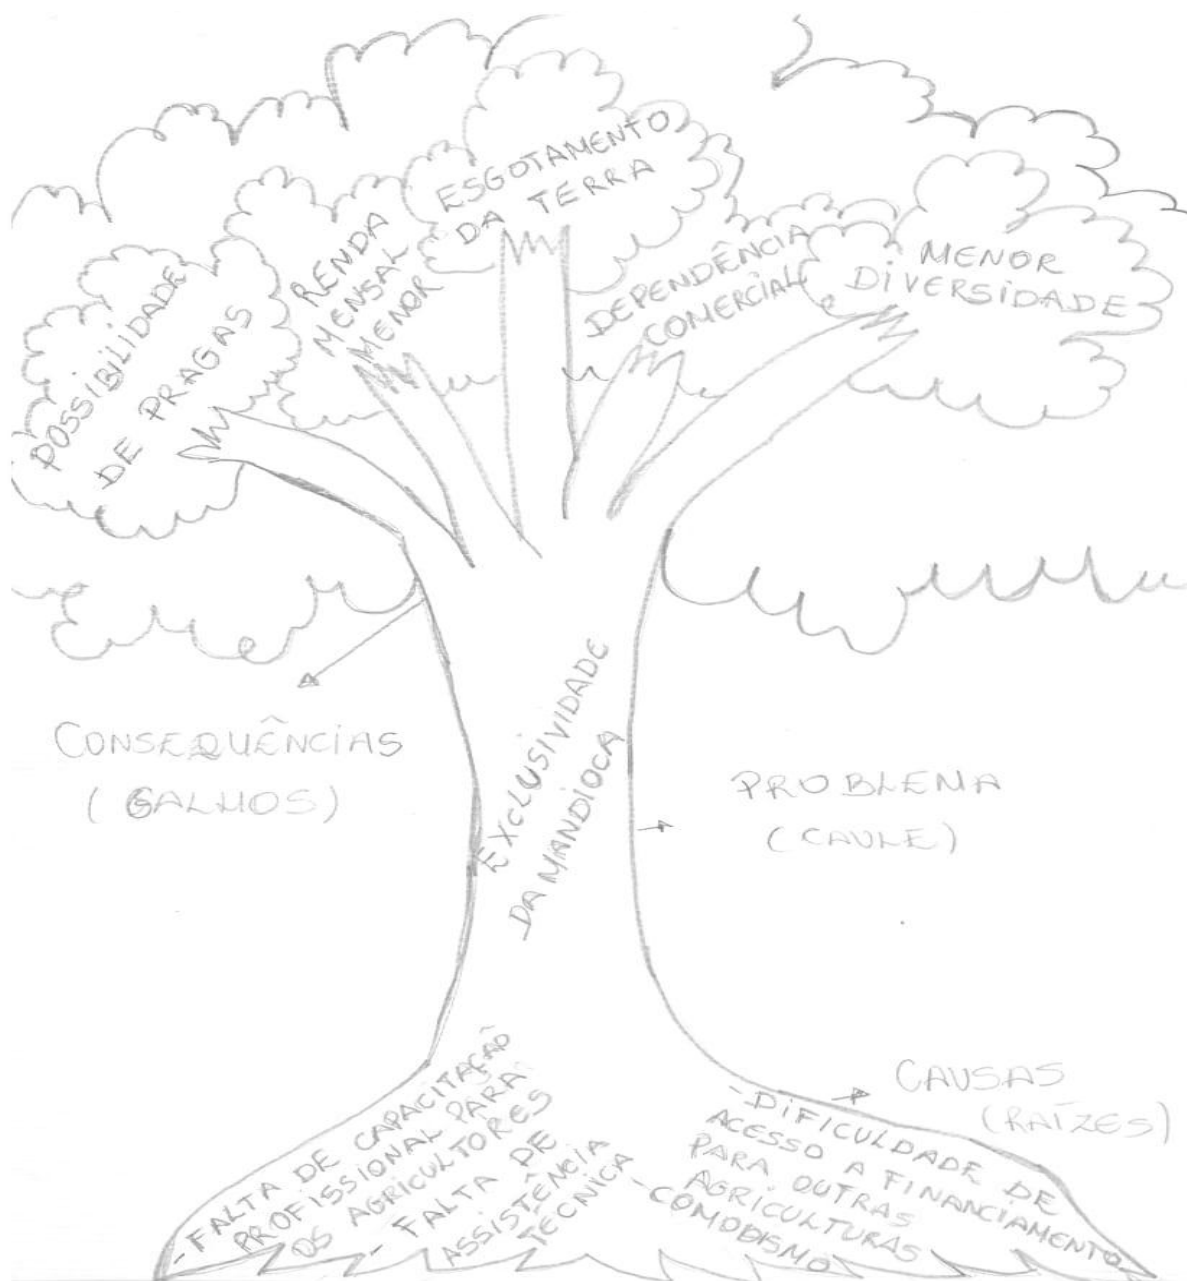 ESGOTAMENTO
DA TERRA
RENDA
MENSAL
MENOR
POSSIBILIDADE
DE PRAGAS
DEPENDÊNCIA
COMERCIAL
MENOR
DIVERSIDADE
CONSEQUÊNCIAS
(GALHOS)
EXCLUSIVIDADE
DA MANDIOCA
PROBLEMA
(CAULE)
CAUSAS
(RAÍZES)
- FALTA DE CAPACITAÇÃO
PROFISSIONAL PARA
OS AGRICULTORES
- FALTA DE
ASSISTÊNCIA
TÉCNICA
- DIFICULDADE DE
ACESSO A FINANCIAMENTO
PARA OUTRAS
AGRICULTURAS
- COMODISMO